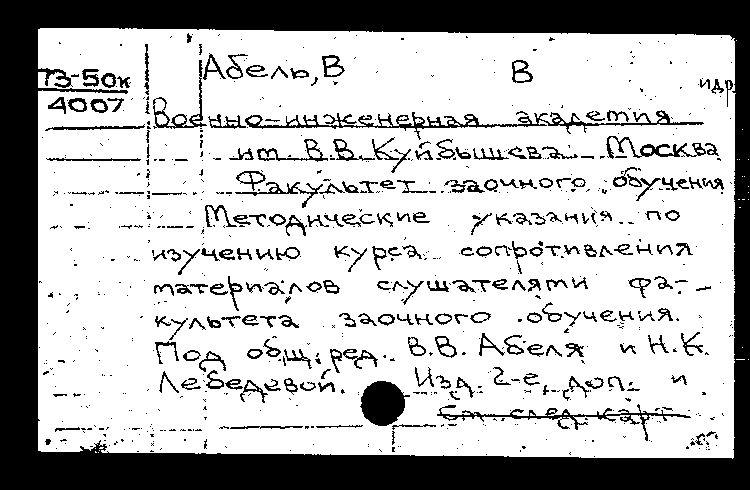 73-50к
4007
Абель, В В
идр
Военно-инженерная академия
им. В.В. Куйбышева. Москва
Факультет заочного обучения
Методические указания по
изучению курса сопротивления
материалов слушателями фа-
культета заочного обучения.
Под общ. ред. В.В. Абеля и Н.К.
Лебедевой. Изд. 2-е, доп. и
См. след. карт